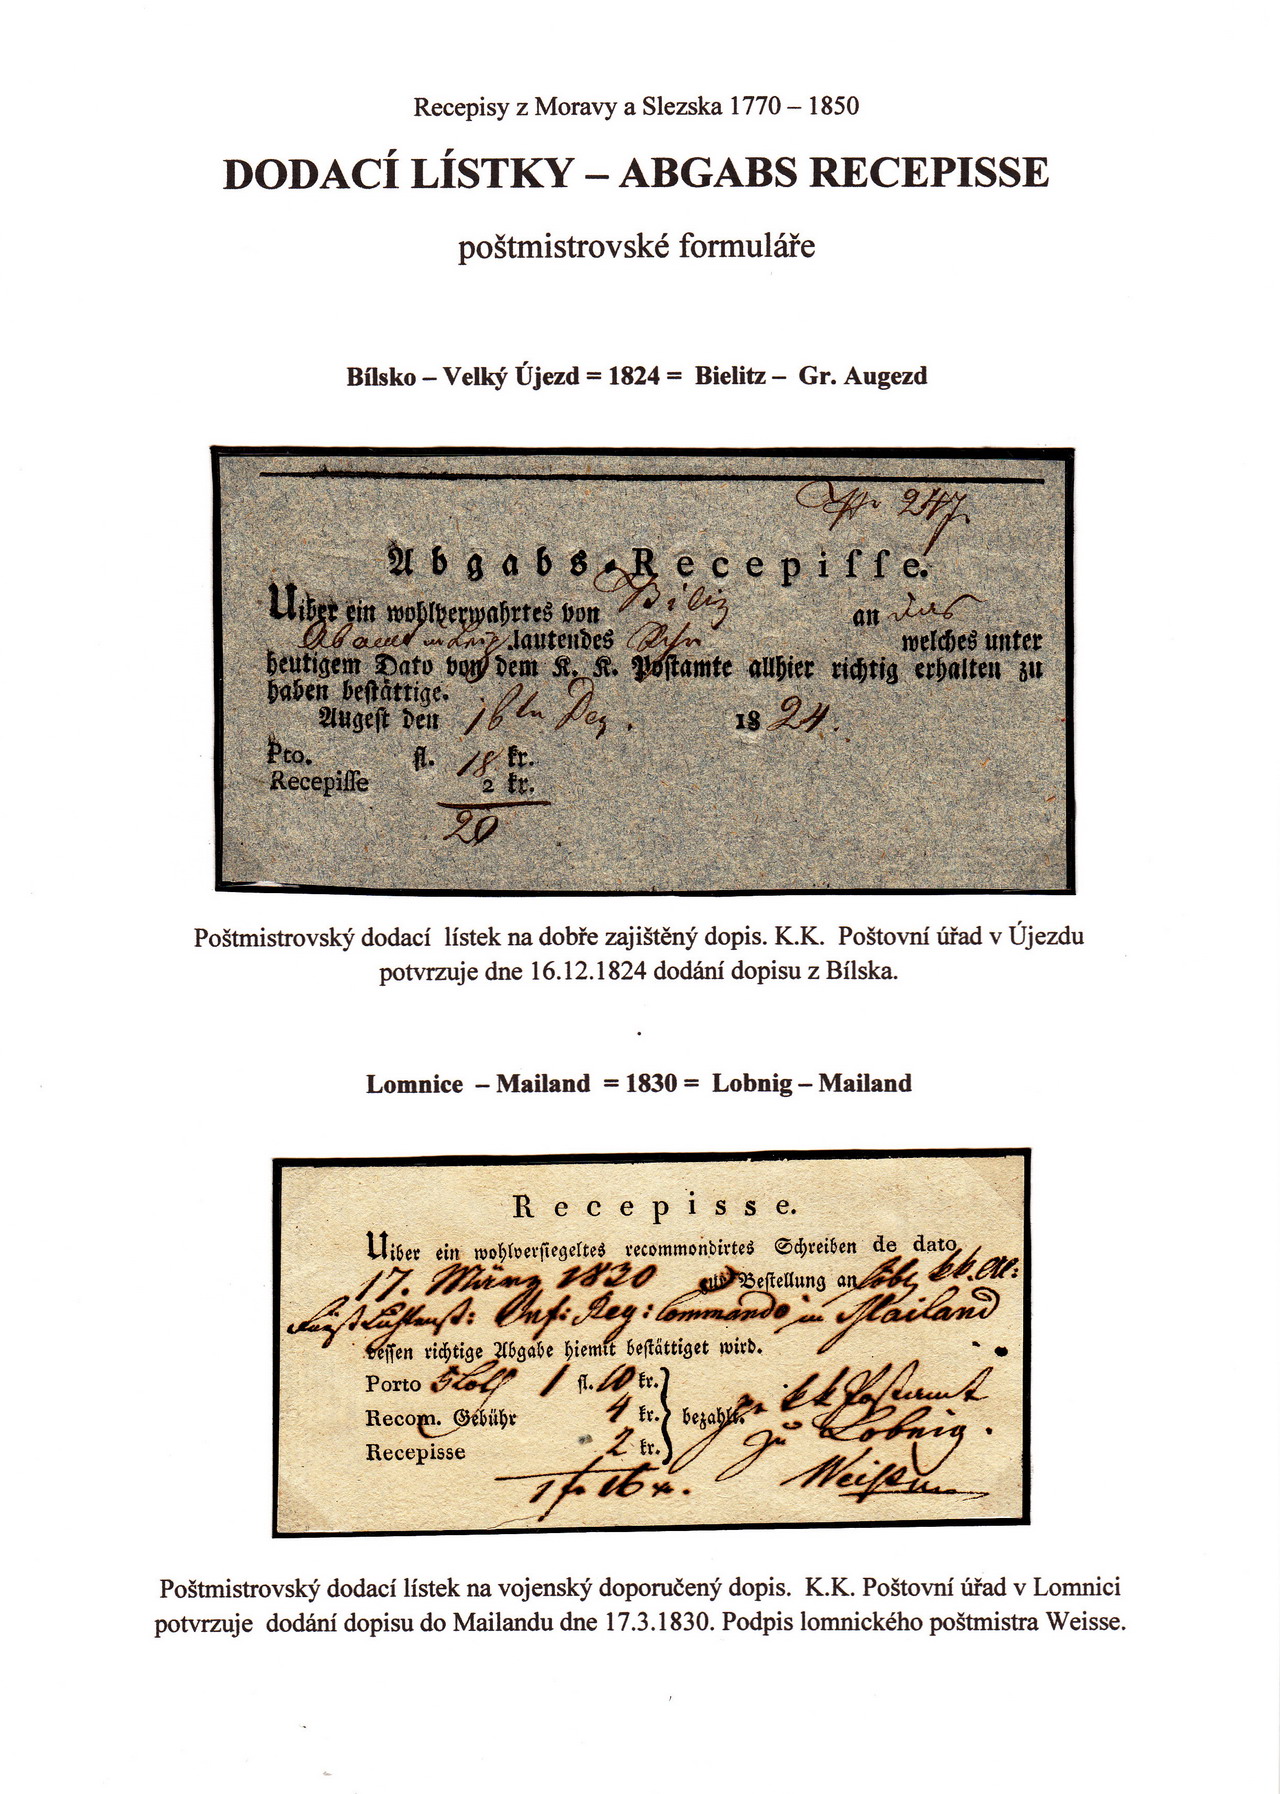 Recepisy z Moravy a Slezska 1770 – 1850
DODACÍ LÍSTKY – ABGABS RECEPISSE
poštmistrovské formuláře
Bílsko – Velký Újezd = 1824 = Bielitz – Gr. Augezd
No 247
Abgabs-Recepisse.
Uiber ein wohlverwahrtes von Biliz an
lautendes welches unter
heutigem Dato von dem K. K. Postamte allhier richtig erhalten zu
haben bestättige.
Augest den 16ten Dez. 1824.
Pto. fl. 18 kr.
Recepisse 2 kr.
20
Poštmistrovský dodací lístek na dobře zajištěný dopis. K.K. Poštovní úřad v Újezdu
potvrzuje dne 16.12.1824 dodání dopisu z Bílska.
Lomnice – Mailand = 1830 = Lobnig – Mailand
Recepisse.
Uiber ein wohlversiegeltes recommondirtes Schreiben de dato
17. März 1830 zur Bestellung an löbl kk.
Inf: Reg: Commando in Mailand
dessen richtige Abgabe hiemit bestättiget wird.
Porto 1 fl. 10 kr.
Recom. Gebühr 4 kr. bezahlt.
Recepisse 2 kr.
kk Postamt
zu Lobnig.
1 f 16 x.
Poštmistrovský dodací lístek na vojenský doporučený dopis. K.K. Poštovní úřad v Lomnici
potvrzuje dodání dopisu do Mailandu dne 17.3.1830. Podpis lomnického poštmistra Weisse.